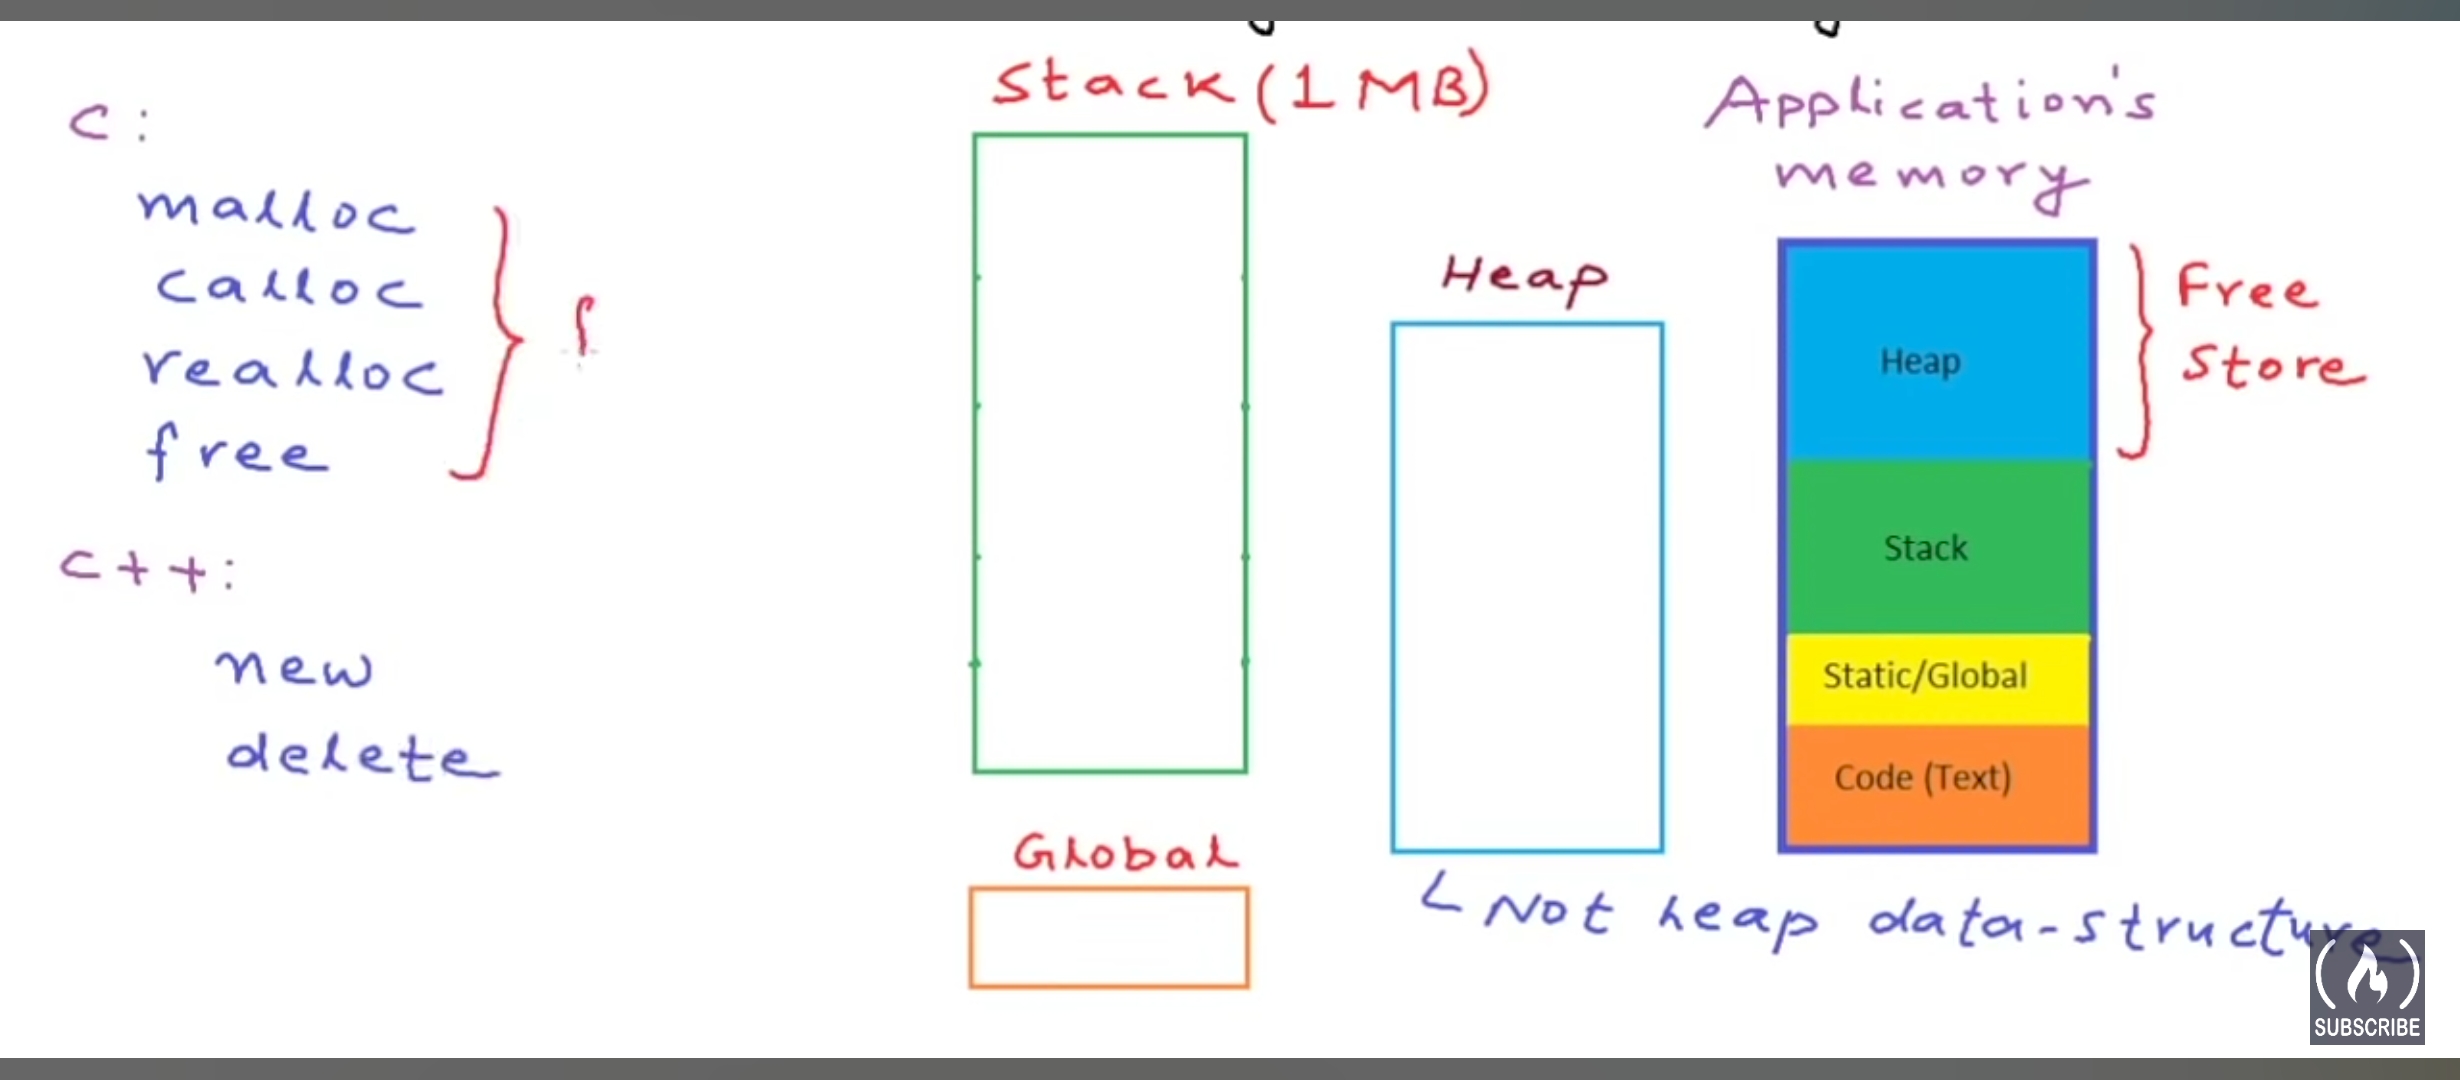 C:
malloc
calloc
realloc
free
f
C++:
new
delete
Stack (1 MB)
Global
Heap
Not heap data-structure
Application's
memory
Heap
Stack
Static/Global
Code (Text)
Free
Store
SUBSCRIBE